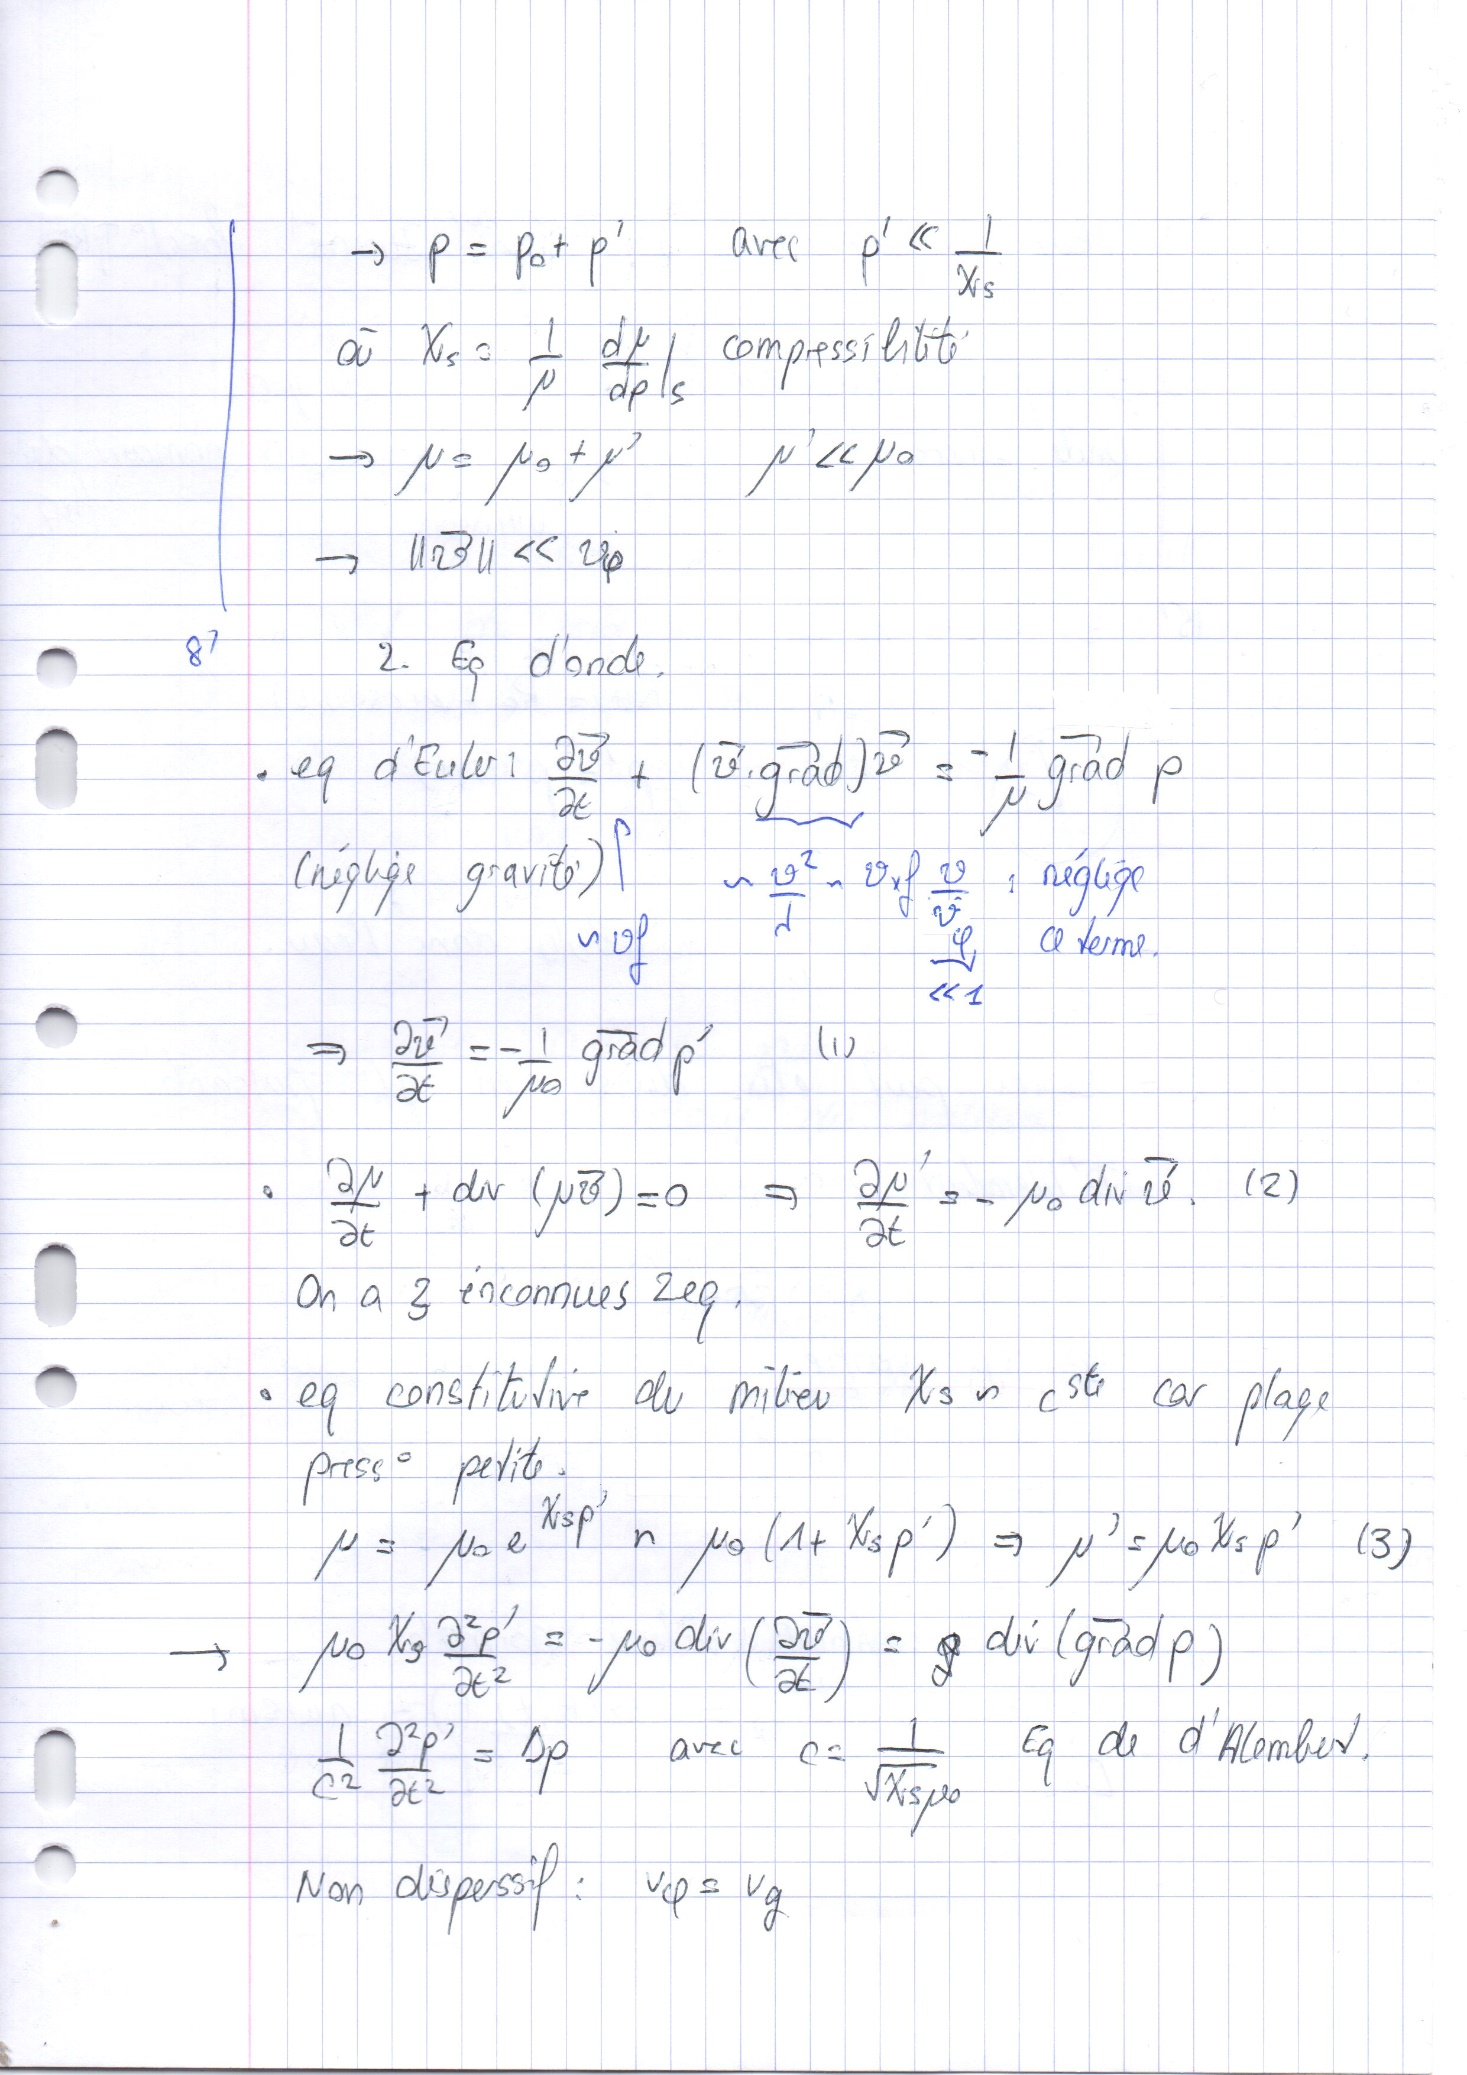 → p = p₀ + p' avec p' << 1/χₛ
où χₛ = 1/μ dμ/dp|ₛ compressibilité
→ μ = μ₀ + μ' μ' << μ₀
→ ||v⃗|| << vφ
8' 2. Eq d'onde.
• eq d'Euler : ∂v⃗/∂t + (v⃗.grad⃗)v⃗ = -1/μ grad⃗ p
(néglige gravité) ~ vf ~ v²/λ ~ v×f v/vφ : néglige
<<1 ce terme.
⇒ ∂v⃗/∂t = -1/μ₀ grad⃗ p' (1)
• ∂μ/∂t + div (μv⃗) = 0 ⇒ ∂μ'/∂t = - μ₀ div v⃗'. (2)
On a 3 inconnues 2eq.
• eq constitutive du milieu χₛ ~ cste car plage
press° petite.
μ = μ₀ e^(χₛp') ~ μ₀ (1 + χₛp') ⇒ μ' = μ₀ χₛ p' (3)
→ μ₀ χₛ ∂²p'/∂t² = - μ₀ div (∂v⃗/∂t) = div (grad⃗ p)
1/c² ∂²p'/∂t² = Δp avec c = 1/√(χₛμ₀) Eq de d'Alembert.
Non disperssif : vφ = vg